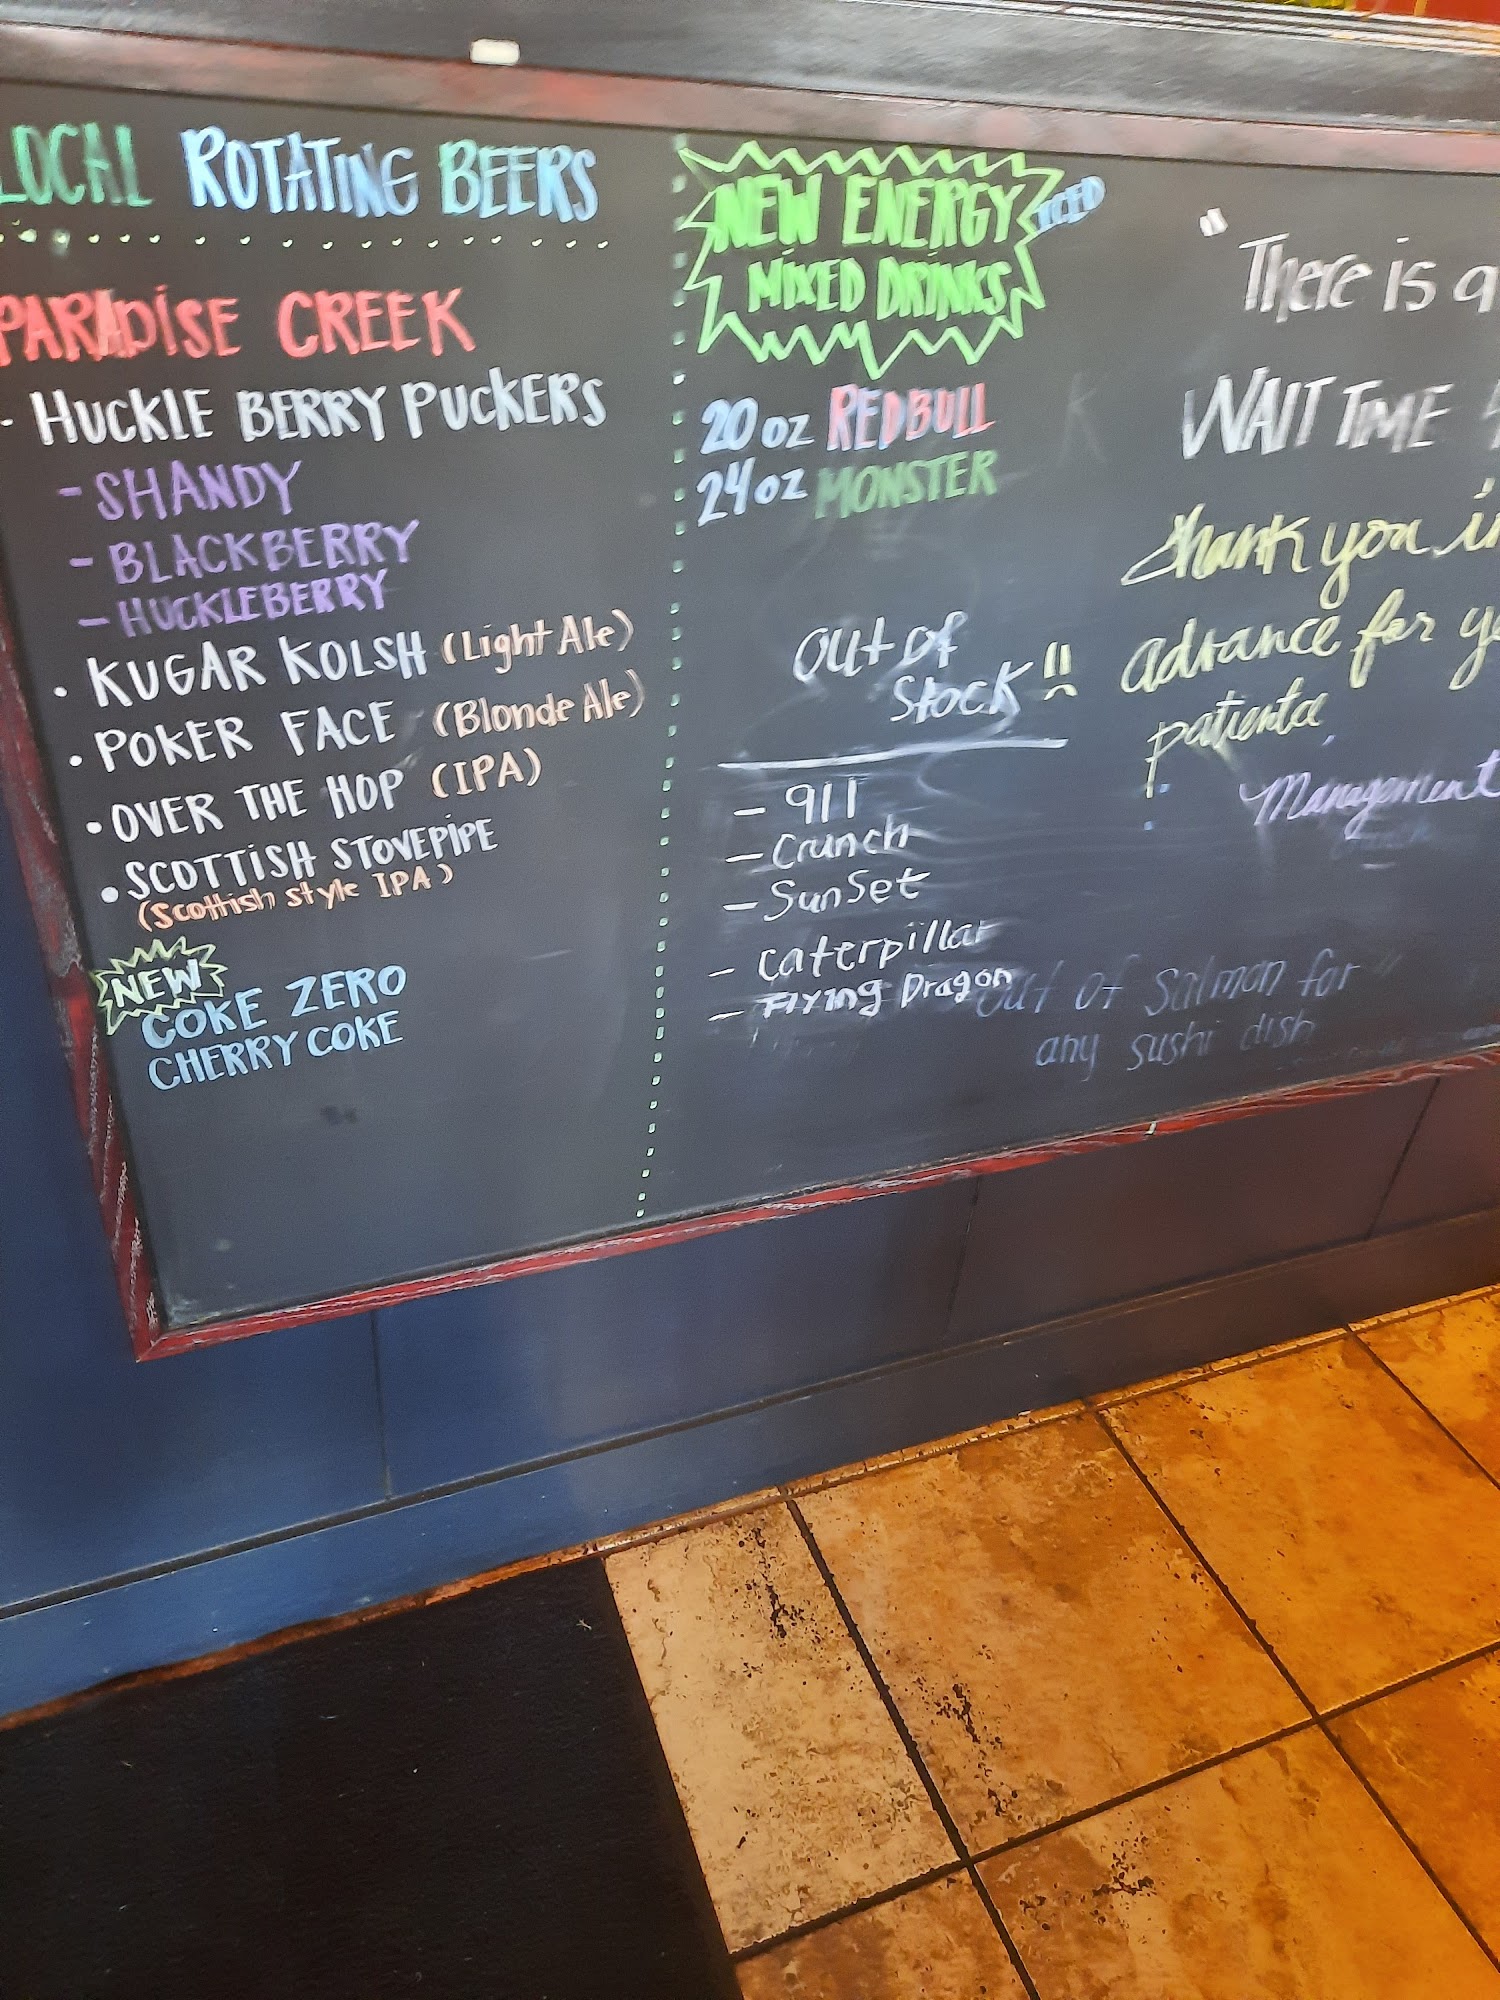 LOCAL ROTATING BEERS
PARADISE CREEK
- HUCKLE BERRY PUCKERS
- SHANDY
- BLACKBERRY
- HUCKLEBERRY
• KUGAR KOLSH (Light Ale)
• POKER FACE (Blonde Ale)
• OVER THE HOP (IPA)
• SCOTTISH STOVEPIPE
(Scottish style IPA)
NEW
COKE ZERO
CHERRY COKE
NEW ENERGY ICED
MIXED DRINKS
20 oz REDBULL
24 oz MONSTER
Out of
Stock !!
- 911
- Crunch
- SunSet
- Caterpillar
- Flying Dragon
"There is a
WAIT TIME
Thank you in
advance for
patience
Management
out of Salmon for
any sushi dish